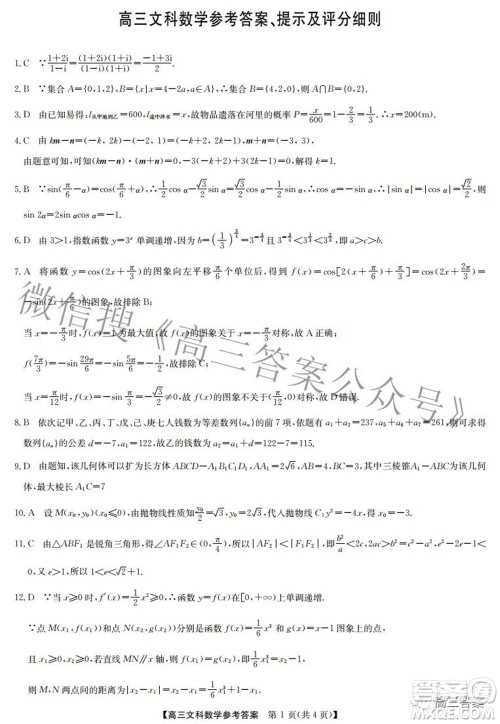 高三文科数学参考答案、提示及评分细则
1. C ∵(1+2i)/(1−i)=(1+2i)(1+i)/((1−i)(1+i))=(−1+3i)/2.
2. B ∵集合A={0,1,2}, B={x|x=4−2a,a∈A}, ∴B={4,2,0}, 则A∩B={0,2}.
3. D 由已知易得:l从甲地到乙=600, l途中涉水=x, 故物品遗落在河里的概率P=x/600=1−2/3=1/3, ∴x=200(m).
4. C 由km−n=(−k,2k)−(−2,1)=(2−k,2k−1), m+n=(−3,3),
由题意可知, 可知(km−n)·(m+n)=0, −3(2−k)+3(2k−1)=0, 解得k=1.
5. B ∵sin(π/6−α)=cos α, ∴1/2cos α−√3/2sin α=cos α, ∴1/2cos α=−√3/2sin α, ∴
则sin 2α=2sin αcos α=
6. D 由3>1, 指数函数y=3ˣ单调递增, 因为b=(1/3)^(−3/4)=3^(3/4)且
7. A 将函数y=cos(2x+π/3)的图象向左平移π/6个单位后, 得到f(x)=cos[2(x+π/6)+π/3]=cos(2x+2π/3)=
−sin(2x+π/6)的图象, 故排除B;
当x=−π/3时, f(x)=1, 为最大值, 故f(x)的图象关于直线x=−π/3对称, 故A正确;
f(7π/3)=−sin 29π/6=−sin 5π/6=−1/2, 故排除C;
当x=π/12时, f(x)=−sin π/3=−√3/2≠0, 故f(x)的图象不关于点(π/12,0)对称, 故D错误.
8. B 依次记甲、乙、丙、丁、戊、己、庚七人钱数为等差数列{aₙ}的前7项, 可得a₁+a₂=237, a₅+a₆+a₇=261, 所以等差
数列{aₙ}的公差d=−7, a₁=122, 故乙的钱数为a₂=a₁+d=122−7=115.
9. D 由题知, 该几何体可以扩为长方体ABCD−A₁B₁C₁D₁, AA₁=2√6, AB=4, BC=3, 其中三棱锥A₁−ABC为该几何体,
最长棱A₁C=7
10. A 设M(x₀,y₀)(x₀≤0), 由抛物线性质知, 代入抛物线
11. C 由△ABF₁是锐角三角形, 得∠AF₁F₂<π/4, 所以|AF₂|<|F₁F₂|, 即b²/a<2c, 2ac>b²=c²−a², e²−2e−1<
0, 又e>1, 所以1<e<√2+1.
12. D ∵当x≥0时, f′(x)=1/2x²≥0, ∴f(x)在[0,+∞)上单调递增.
∵点M(x₁,f(x₁))和点N(x₂,g(x₂))分别是函数f(x)=1/6x³和g(x)=x−1图象上的点,
且x₁≥0,x₂>0, 若直线MN∥x轴, 则f(x₁)=g(x₂), 即1/6x₁³=x₂−1,
【高三文科数学参考答案 第1页(共4页)】
微信搜《高三答案公众号》
高三答案